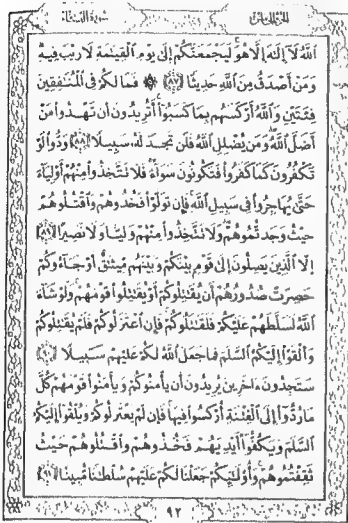 الجزء الخامس سورة النساء
ٱللَّهُ لَآ إِلَٰهَ إِلَّا هُوَ لَيَجْمَعَنَّكُمْ إِلَىٰ يَوْمِ ٱلْقِيَٰمَةِ لَا رَيْبَ فِيهِ
وَمَنْ أَصْدَقُ مِنَ ٱللَّهِ حَدِيثًا ﴿٨٧﴾ ۞ فَمَا لَكُمْ فِى ٱلْمُنَٰفِقِينَ
فِئَتَيْنِ وَٱللَّهُ أَرْكَسَهُم بِمَا كَسَبُوٓا۟ أَتُرِيدُونَ أَن تَهْدُوا۟ مَنْ
أَضَلَّ ٱللَّهُ وَمَن يُضْلِلِ ٱللَّهُ فَلَن تَجِدَ لَهُۥ سَبِيلًا ﴿٨٨﴾ وَدُّوا۟ لَوْ
تَكْفُرُونَ كَمَا كَفَرُوا۟ فَتَكُونُونَ سَوَآءً فَلَا تَتَّخِذُوا۟ مِنْهُمْ أَوْلِيَآءَ
حَتَّىٰ يُهَاجِرُوا۟ فِى سَبِيلِ ٱللَّهِ فَإِن تَوَلَّوْا۟ فَخُذُوهُمْ وَٱقْتُلُوهُمْ
حَيْثُ وَجَدتُّمُوهُمْ وَلَا تَتَّخِذُوا۟ مِنْهُمْ وَلِيًّا وَلَا نَصِيرًا ﴿٨٩﴾
إِلَّا ٱلَّذِينَ يَصِلُونَ إِلَىٰ قَوْمٍۭ بَيْنَكُمْ وَبَيْنَهُم مِّيثَٰقٌ أَوْ جَآءُوكُمْ
حَصِرَتْ صُدُورُهُمْ أَن يُقَٰتِلُوكُمْ أَوْ يُقَٰتِلُوا۟ قَوْمَهُمْ وَلَوْ شَآءَ
ٱللَّهُ لَسَلَّطَهُمْ عَلَيْكُمْ فَلَقَٰتَلُوكُمْ فَإِنِ ٱعْتَزَلُوكُمْ فَلَمْ يُقَٰتِلُوكُمْ
وَأَلْقَوْا۟ إِلَيْكُمُ ٱلسَّلَمَ فَمَا جَعَلَ ٱللَّهُ لَكُمْ عَلَيْهِمْ سَبِيلًا ﴿٩٠﴾
سَتَجِدُونَ ءَاخَرِينَ يُرِيدُونَ أَن يَأْمَنُوكُمْ وَيَأْمَنُوا۟ قَوْمَهُمْ كُلَّ
مَا رُدُّوٓا۟ إِلَى ٱلْفِتْنَةِ أُرْكِسُوا۟ فِيهَا فَإِن لَّمْ يَعْتَزِلُوكُمْ وَيُلْقُوٓا۟ إِلَيْكُمُ
ٱلسَّلَمَ وَيَكُفُّوٓا۟ أَيْدِيَهُمْ فَخُذُوهُمْ وَٱقْتُلُوهُمْ حَيْثُ
ثَقِفْتُمُوهُمْ وَأُو۟لَٰٓئِكُمْ جَعَلْنَا لَكُمْ عَلَيْهِمْ سُلْطَٰنًا مُّبِينًا ﴿٩١﴾
٩٢